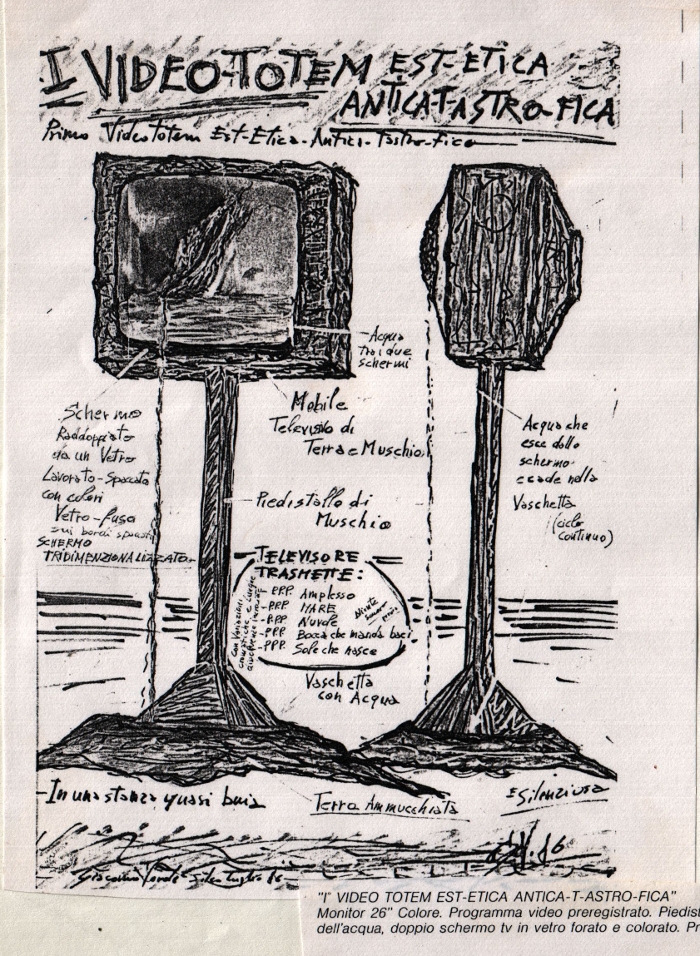 I VIDEO-TOTEM EST-ETICA
ANTICA-T-ASTRO-FICA
Primo Videototem Est-Etica-Antica-Tastro-fica
Acqua
tra i due
schermi
Schermo
Raddoppiato
da un Vetro
Lavorato-Spaccato
con colori
Vetro-fuso
sui bordi spaccati
SCHERMO
TRIDIMENZIONALIZZATO
Mobile
Televisivo di
Terra e Muschio
Piedistallo di
Muschio
Acqua che
esce dallo
schermo
e cade nella
Vaschetta
(ciclo
continuo)
TELEVISORE
TRASMETTE:
- PPP. Amplesso
- PPP MARE
- PPP Nuvole
- PPP Bocca che manda baci
- PPP. Sole che nasce
con variazioni
Vaschetta
con Acqua
- In una stanza quasi buia
Terra Ammucchiata
E Silenziosa
Giacomo Verde
86
"I' VIDEO TOTEM EST-ETICA ANTICA-T-ASTRO-FICA"
Monitor 26" Colore. Programma video preregistrato. Piedist
dell'acqua, doppio schermo tv in vetro forato e colorato. Pr